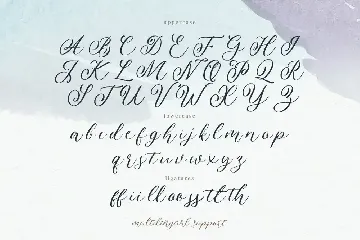 uppercase
A B C D E F G H I
J K L M N O P Q R
S T U V W X Y Z
lowercase
a b c d e f g h i j k l m n o p
q r s t u v w x y z
ligatures
ff ii ll oo ss tt th
multilingual support